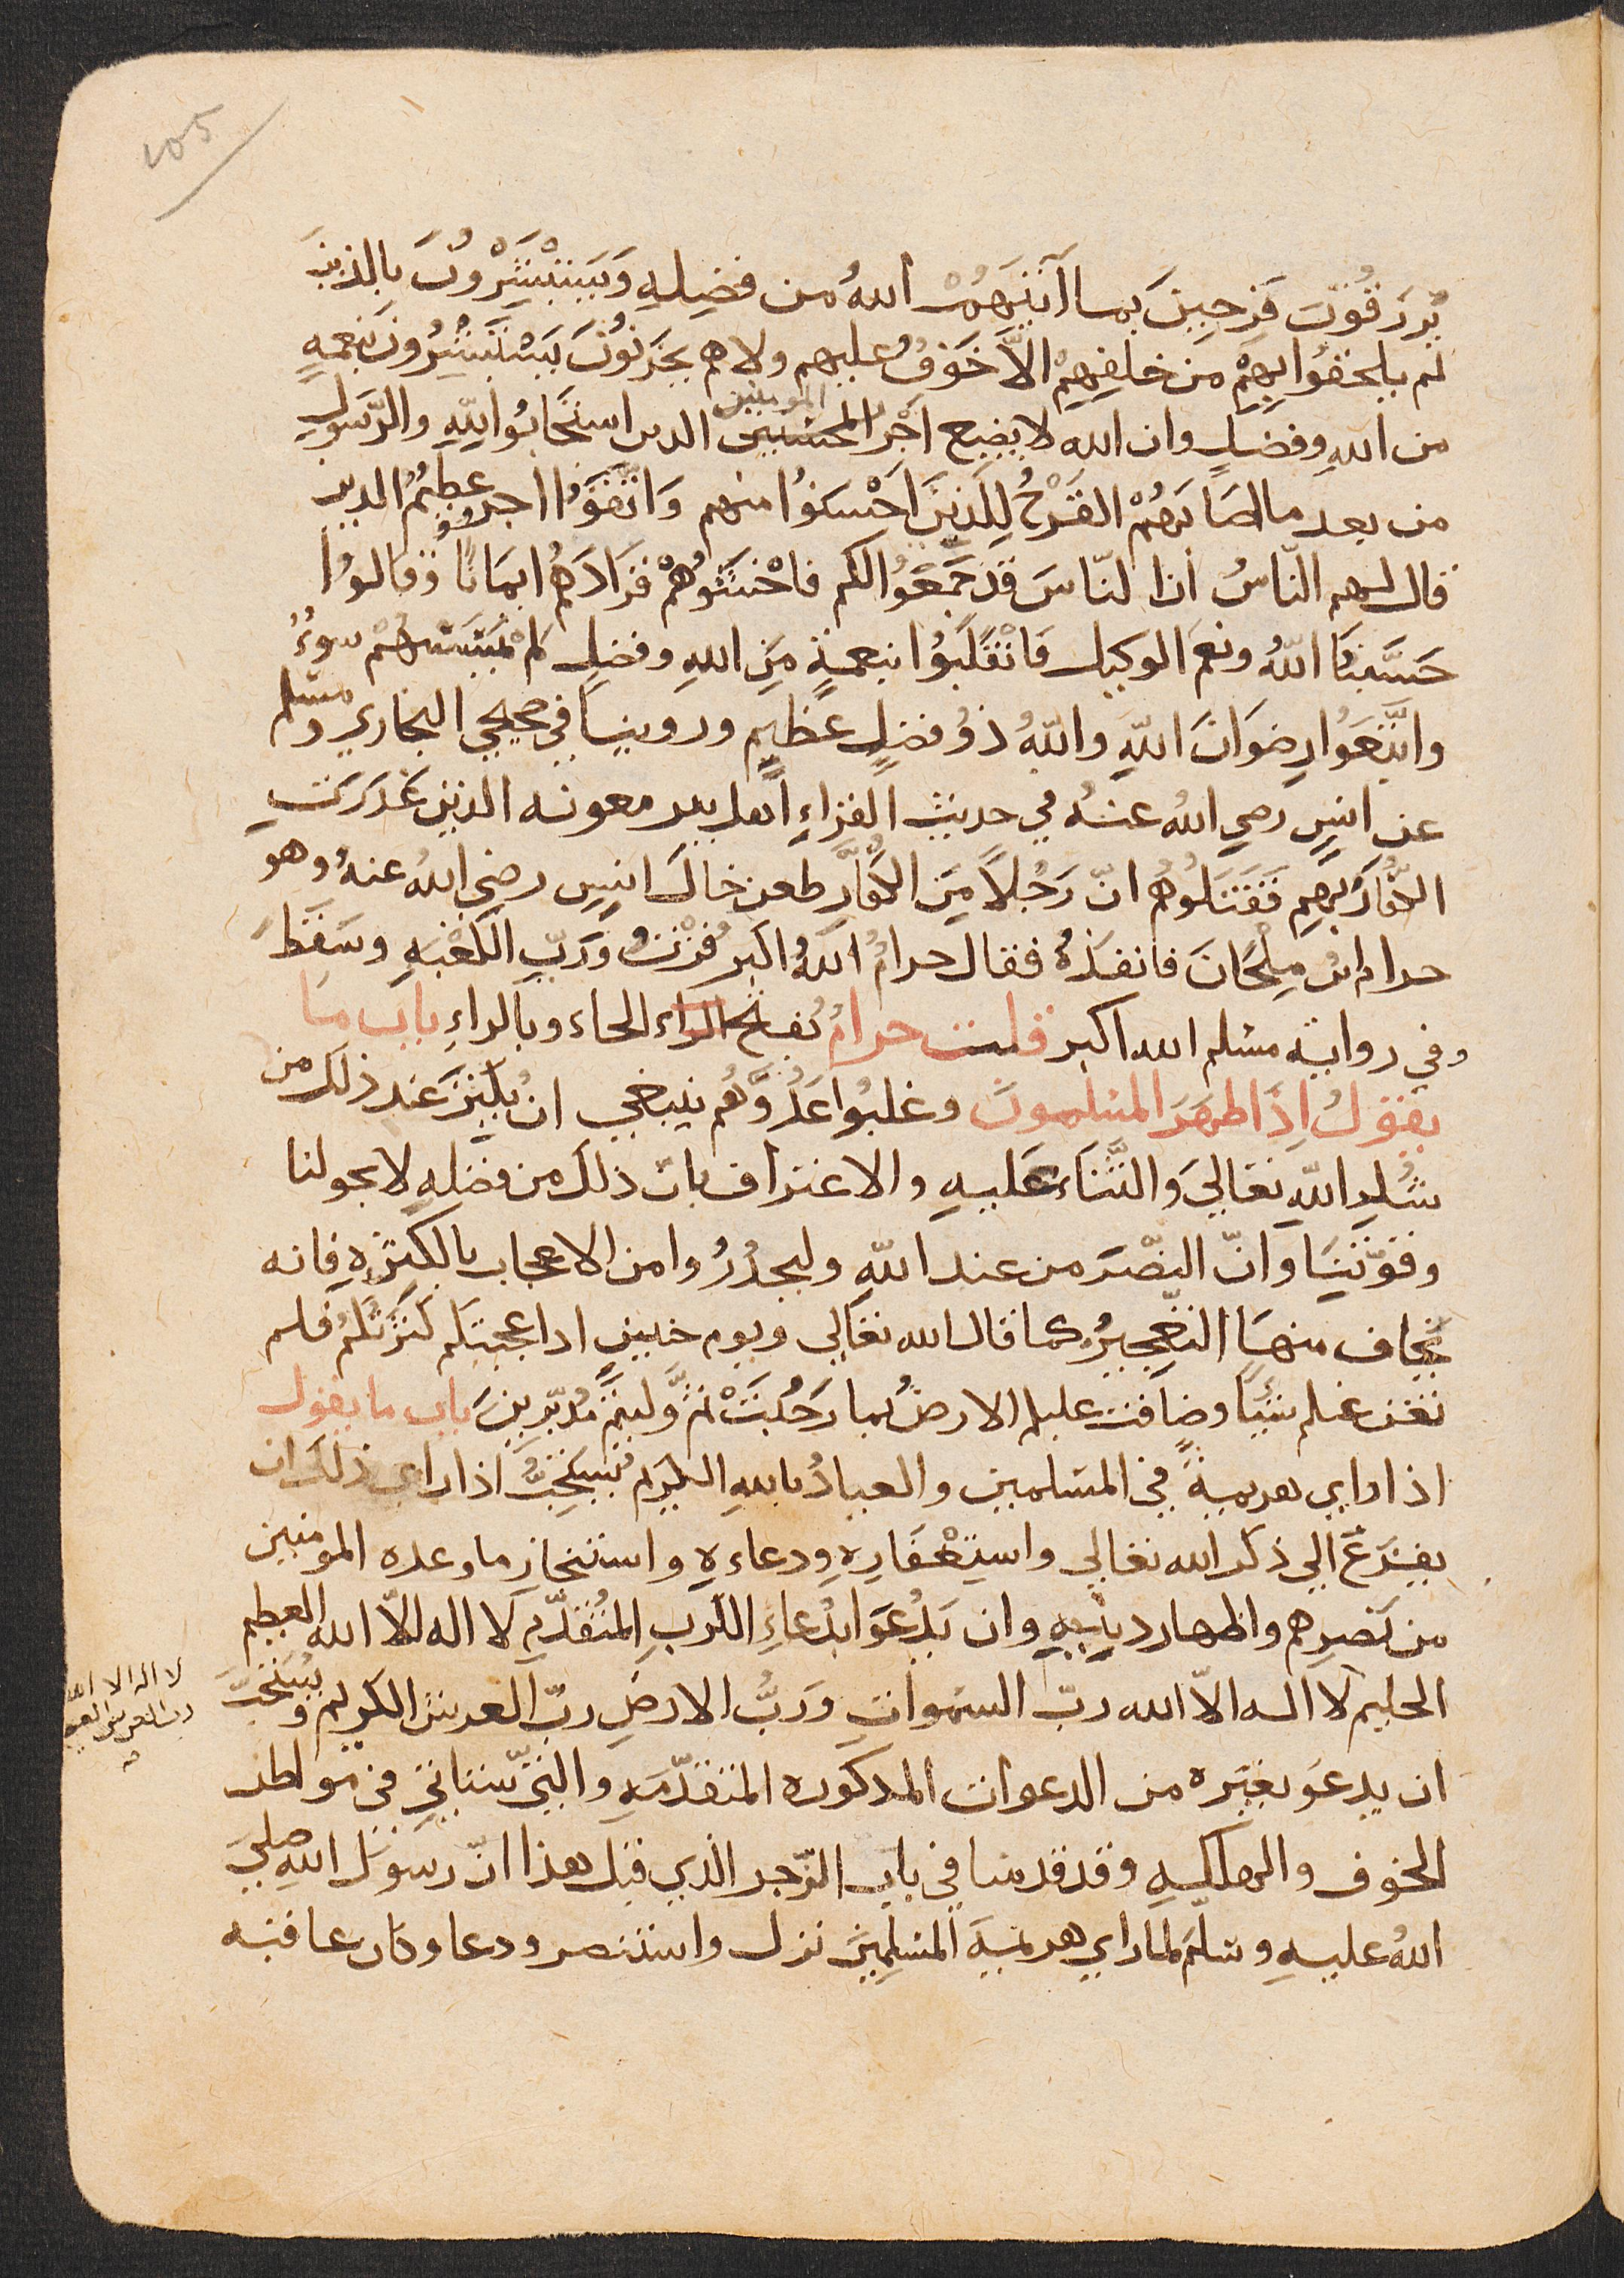 105
يُرزقُون فرحِينَ بما اآتيَهُمْ اللهُ من فضلِهِ وَيَستبشِرُونَ بالذينَ
لم يلحقُوا بِهِمْ من خلفِهِمْ الاَّ خَوفٌ عليهم ولا هم يحزنُونَ يَسْتَبْشِرُونَ بنعمةٍ
من اللهِ وفضلٍ وان الله لا يضيع اجْرَ المحسنين المومنين الدىن استجَابُوا للهِ والرّسولِ
من بعد ما اصَابَهُمْ القَرْحُ لِلّذِينَ احْسَنُوا منهم وَاتّقَوْا اجرٌ عظِيمٌ الدين
قال لهم النّاسُ ان النّاسَ قد جَمَعُوا لكم فاخْشَوْهُمْ فزادَهُم ايمَانًا وَّقالوُا
حَسْبُنَا اللهُ ونعمَ الوكيل فانْقَلَبُوا بنعمةٍ مِن اللهِ وفضلٍ لم يَمْسَسْهُمْ سوءٌ
واتَّبَعُوا رضوَانَ اللهِ واللهُ ذُو فضلٍ عظيمٍ وروينا في صحيحي البخاري ومسلم
عن انسٍ رضي اللهُ عنهُ في حديث القراءِ اهل بير معونه الذين غدرت
الكفّارُ بِهِم فَقَتَلُوهُم انّ رَجُلاً مِن الكفّارِ طعن خالَ انسٍ رضي اللهُ عنهُ وهو
حرام ابن مِلْحَانَ فانفذهُ فقال حرامٌ اللهُ اكبر فُزْتُ وَرَبِّ الكعْبَهِ وسَقَطَ
وفي رواية مسلم الله اكبر قلت حرامٌ بفتح الراء الحاء وبالراءِ باب ما
يقولُ اذا ظهَرَ المسلمونَ وغلبُوا عَدُوَّهُم ينبغي ان يُكثِرَ عند ذلك من
شُكرِ اللهِ تعَالي والثّناء عليهِ والاعتراف بان ذلك من فضلهِ لا بحولنا
وقوّتِنَا وانّ النصْرَ من عند اللهِ وليحذرُوا من الاعجاب بالكثرةِ فانه
يخاف منهَا التعجيزُ كما قال الله تعَالي ويوم حنينٍ اذا عجبتكم كثرتكُم فلم
تغن عنكم شيًا وضاقت عليكم الارضُ بما رَحُبَتْ ثمَّ وليتم مُدبِّرِينَ باب ما يقول
اذا راي هزيمةً في المسلمين والعياذُ باللهِ الكريم يُسْتحبُّ اذا راي ذلك ان
يفزعَ الي ذكر الله تعالي واستِغْفَارِهِ ودعاءهِ واستنجازِ ما وعده المومنين
من نَصرِهم واظهار دِينِهِ وان يَدْعُوَ ابدعاءِ الكرب المُتقدّمِ لا اله الاّ الله العظيم
الحليم لا اله الاّ الله ربّ السّمواتِ وَرَبُّ الارضِ ربّ العرش الكريم ويُستحبُّ
لا اله الا الله
رب العرش العظيم
ان يدعوَ بغيره من الدعوات المذكوره المتقدّمهِ والتي ستاتي في مواطن
الخوف والهلكهِ وقد قدمنا في باب الرّجز الذي قبل هذا انّ رسول اللهِ صلى
اللهُ عليهِ وسَلّم لما راي هزيمة المسلِمِينَ نزل واستنصر ودعا وكان عاقبه